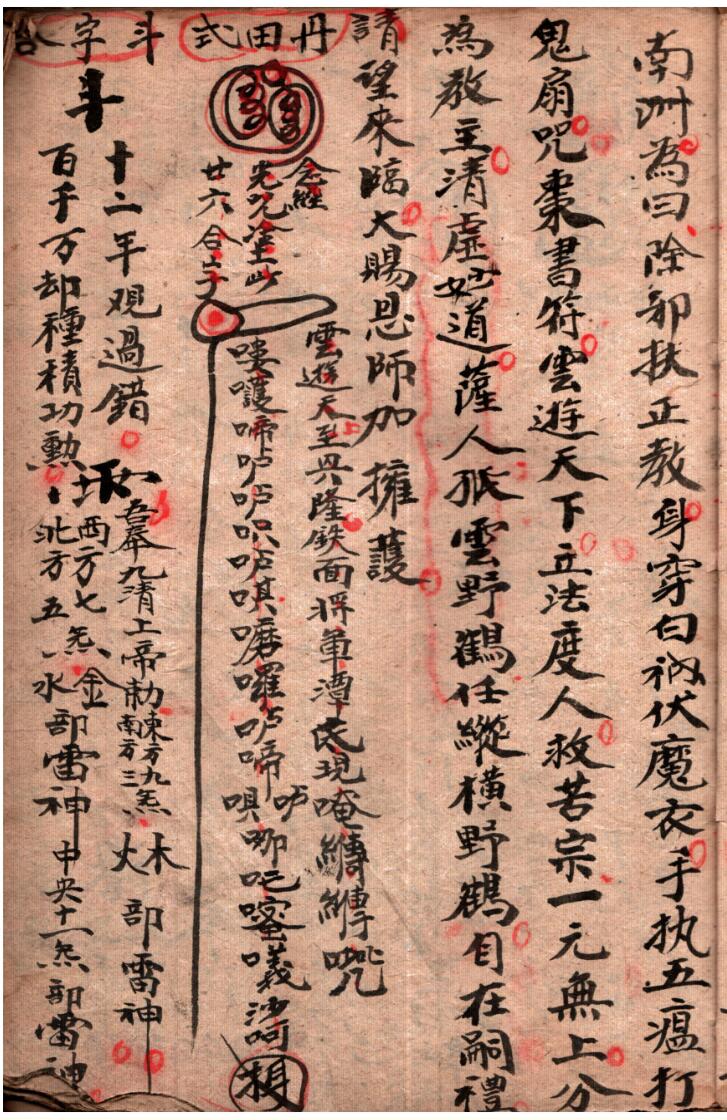 南洲為曰除邪扶正教身穿白衲伏魔衣手执五瘟打
鬼扇咒棗書符雲遊天下立法度人救苦宗一元無上分
為教主清虛妙道薩人孤雲野鶴任縱橫野鶴自在嗣禮
請望來臨大賜恩師加擁護
丹田式
念經
光咒塗此
廿六合字
雲遊天至興隆鉄面將軍潭民現唵縛縛咒
嘍護啼嚧嚧呪嚧唭嚤囉嚧啼嚧唄唧吃蜜嚱沙呵
斗字
斗
十二年观過錯
吾奉九清上帝勅東方九炁南方三炁木火部雷神
百千万却種積功勲
西方七炁北方五炁金水部雷神中央十一炁部雷神